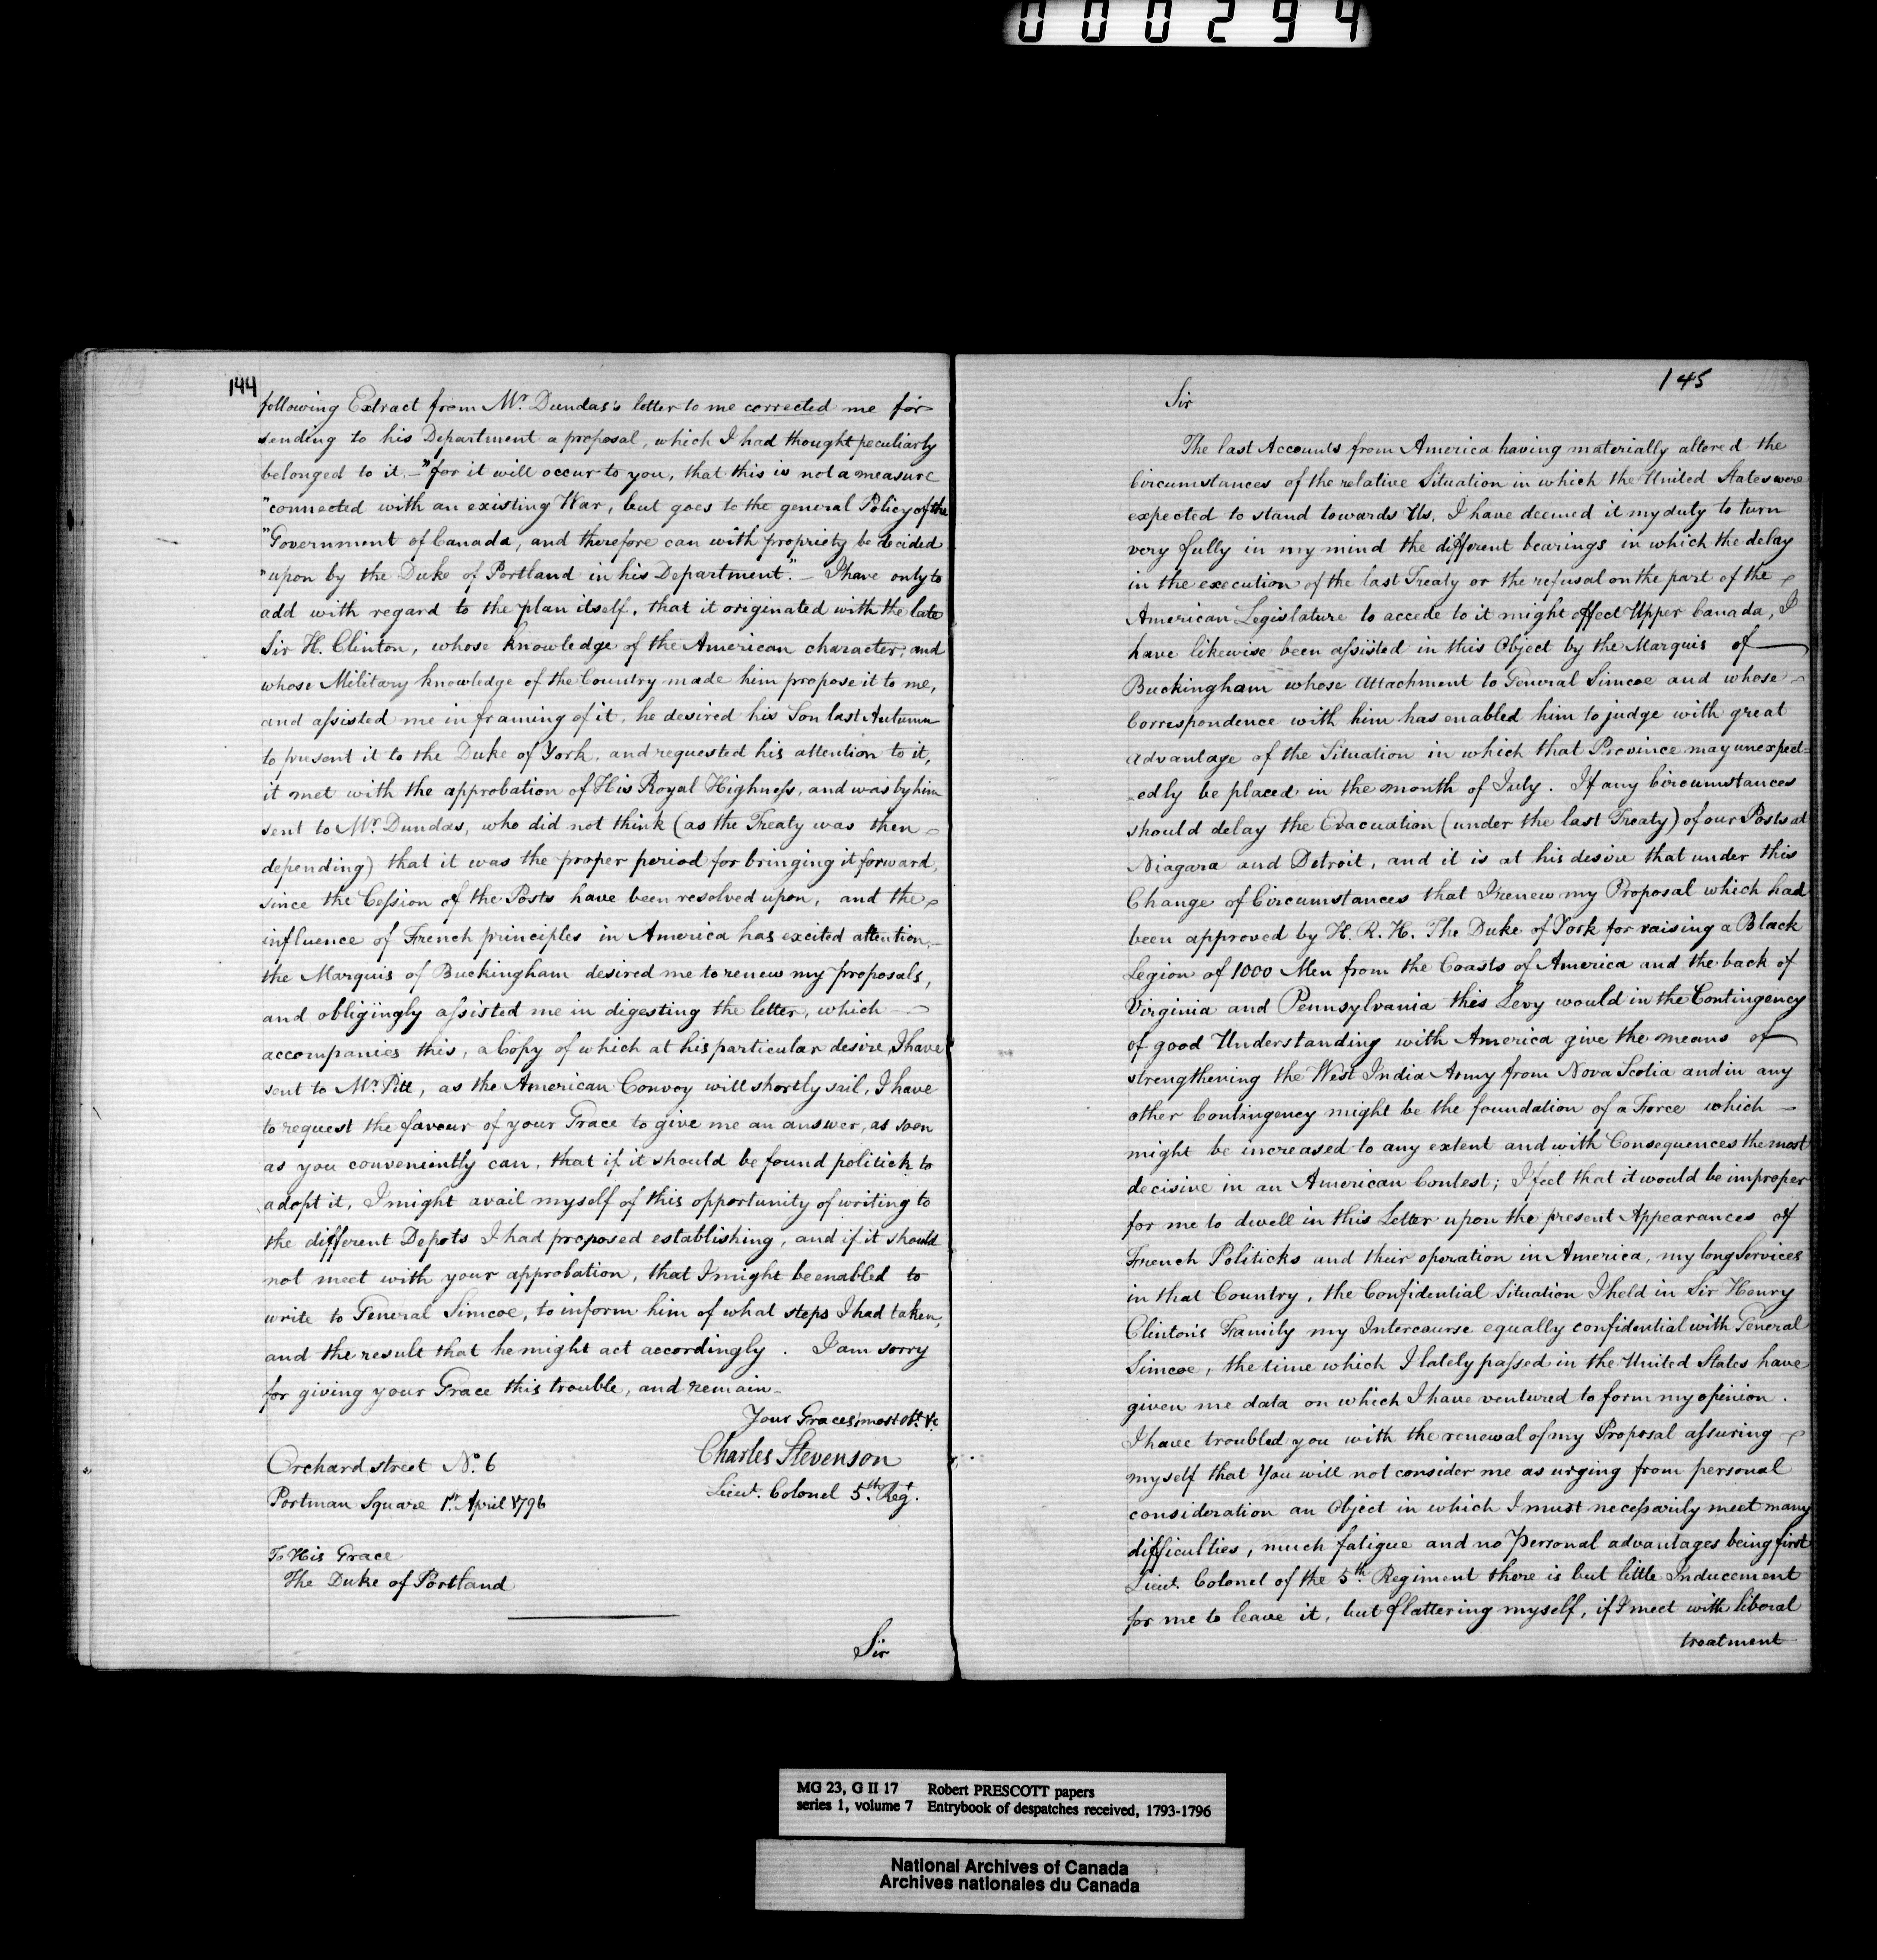 000294
144
following Extract from Mr. Dundas's letter to me corrected me for
sending to his Department a proposal, which I had thought peculiarly
belonged to it. – "for it will occur to you, that this is not a measure
"connected with an existing War, but goes to the general Policy of the
"Government of Canada, and therefore can with propriety be decided
"upon by the Duke of Portland in his Department." – I have only to
add with regard to the plan itself, that it originated with the late
Sir H. Clinton, whose knowledge of the American character, and
whose Military knowledge of the Country made him propose it to me,
and assisted me in framing of it, he desired his Son last Autumn
to present it to the Duke of York, and requested his attention to it,
it met with the approbation of His Royal Highness, and was by him
sent to Mr. Dundas, who did not think (as the Treaty was then
depending) that it was the proper period for bringing it forward,
since the Cession of the Posts have been resolved upon, and the
influence of French principles in America has excited attention, –
the Marquis of Buckingham desired me to renew my proposals,
and obligingly assisted me in digesting the letter, which –
accompanies this, a Copy of which at his particular desire, I have
sent to Mr. Pitt, as the American Convoy will shortly sail, I have
to request the favour of your Grace to give me an answer, as soon
as you conveniently can, that if it should be found politick to
adopt it, I might avail myself of this opportunity of writing to
the different Depots I had proposed establishing, and if it should
not meet with your approbation, that I might be enabled to
write to General Simcoe, to inform him of what steps I had taken,
and the result that he might act accordingly. I am sorry
for giving your Grace this trouble, and remain –
Your Graces' most obt. &c
Charles Stevenson
Lieut. Colonel 5th. Regt.
Orchard street No. 6
Portman Square 1st. April 1796
To His Grace
The Duke of Portland
Sir
145
Sir
The last Accounts from America having materially altered the
Circumstances of the relative Situation in which the United States were
expected to stand towards Us, I have deemed it my duty to turn
very fully in my mind the different bearings in which the delay
in the execution of the last Treaty or the refusal on the part of the
American Legislature to accede to it might affect Upper Canada, I
have likewise been assisted in this Object by the Marquis of
Buckingham whose Attachment to General Simcoe and whose
Correspondence with him has enabled him to judge with great
advantage of the Situation in which that Province may unexpect=
-edly be placed in the month of July. If any Circumstances
should delay the Evacuation (under the last Treaty) of our Posts at
Niagara and Detroit, and it is at his desire that under this
Change of Circumstances that I renew my Proposal which had
been approved by H. R. H. The Duke of York for raising a Black
Legion of 1000 Men from the Coasts of America and the back of
Virginia and Pennsylvania this Levy would in the Contingency
of good Understanding with America give the means of
strengthening the West India Army from Nova Scotia and in any
other Contingency might be the foundation of a Force which –
might be increased to any extent and with Consequences the most
decisive in an American Contest; I feel that it would be improper
for me to dwell in this Letter upon the present Appearances of
French Politicks and their operation in America, my long Services
in that Country, the Confidential Situation I held in Sir Henry
Clinton's Family my Intercourse equally confidential with General
Simcoe, the time which I lately passed in the United States have
given me data on which I have ventured to form my opinion.
I have troubled you with the renewal of my Proposal assuring
myself that You will not consider me as urging from personal
consideration an Object in which I must necessarily meet many
difficulties, much fatigue and no Personal advantages being first
Lieut. Colonel of the 5th. Regiment there is but little Inducement
for me to leave it, but flattering myself, if I meet with liberal
treatment
MG 23, G II 17 Robert PRESCOTT papers
series 1, volume 7 Entrybook of despatches received, 1793-1796
National Archives of Canada
Archives nationales du Canada